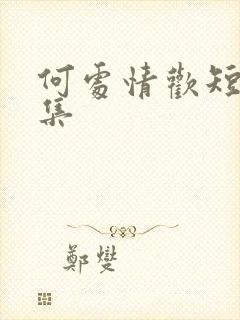 何處情歡短
集
鄭燮